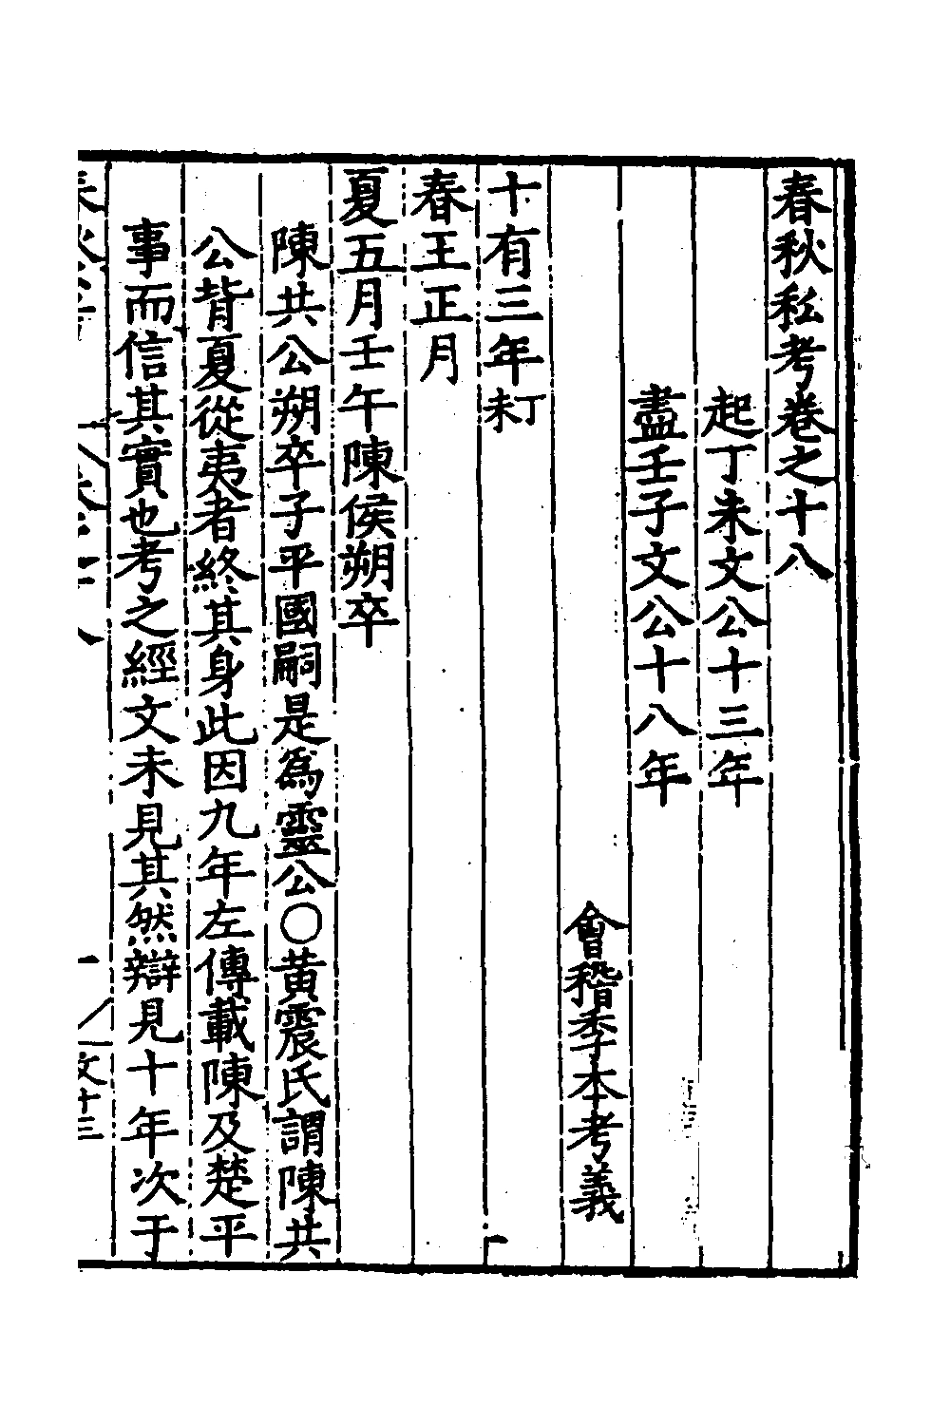 春秋私考卷之十八
起丁未文公十三年
盡壬子文公十八年
會稽季本考義
十有三年丁未
春王正月
夏五月壬午陳侯朔卒
陳共公朔卒子平國嗣是爲靈公○黄震氏謂陳共
公背夏從夷者終其身此因九年左傳載陳及楚平
事而信其實也考之經文未見其然辯見十年次于
文十三